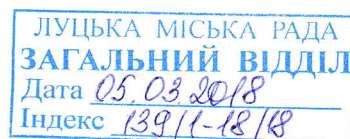 ЛУЦЬКА МІСЬКА РАДА
ЗАГАЛЬНИЙ ВІДДІЛ
Дата 05.03.2018
Індекс 139/1-18/18